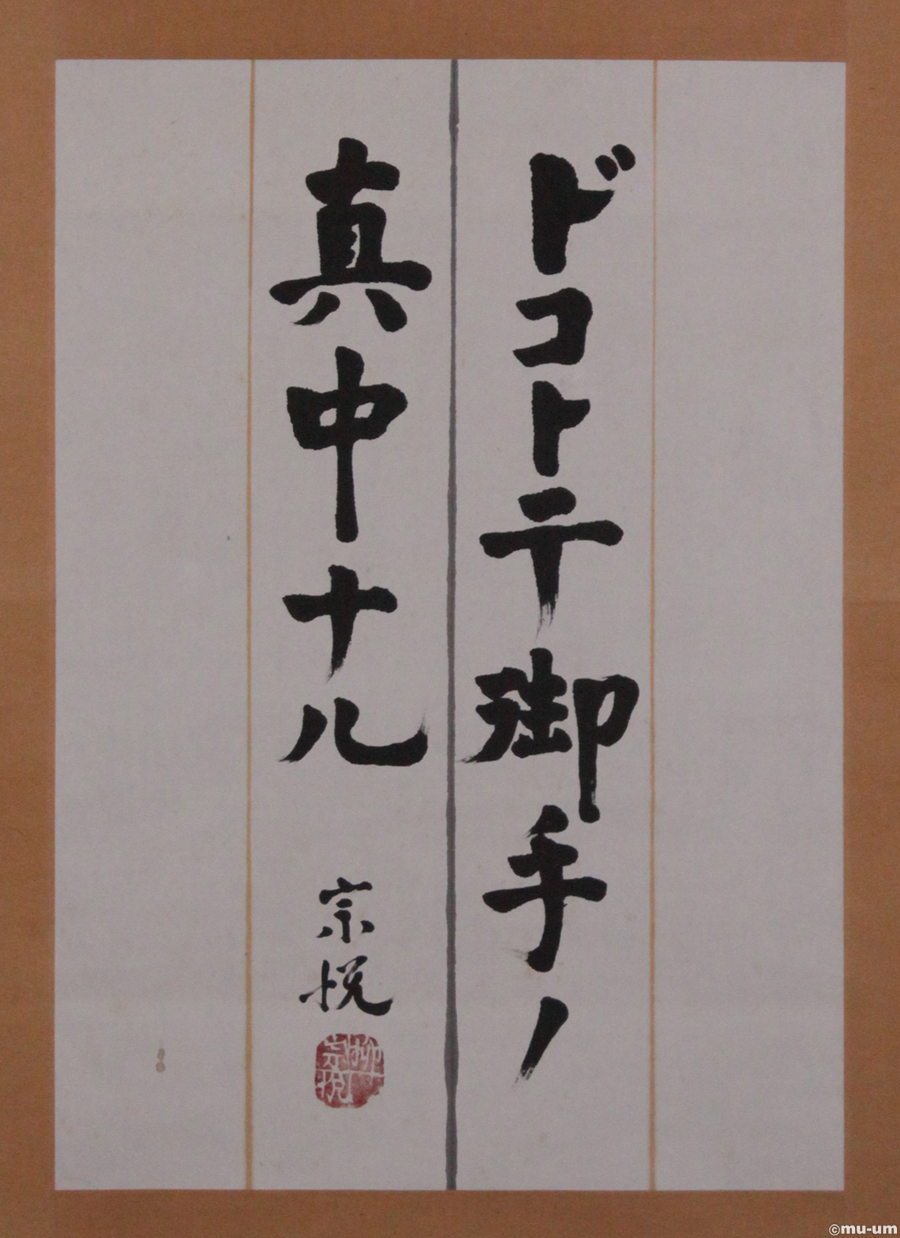 ドコトテ御手ノ
真中ナル
宗悦
柳宗悦
©mu-um